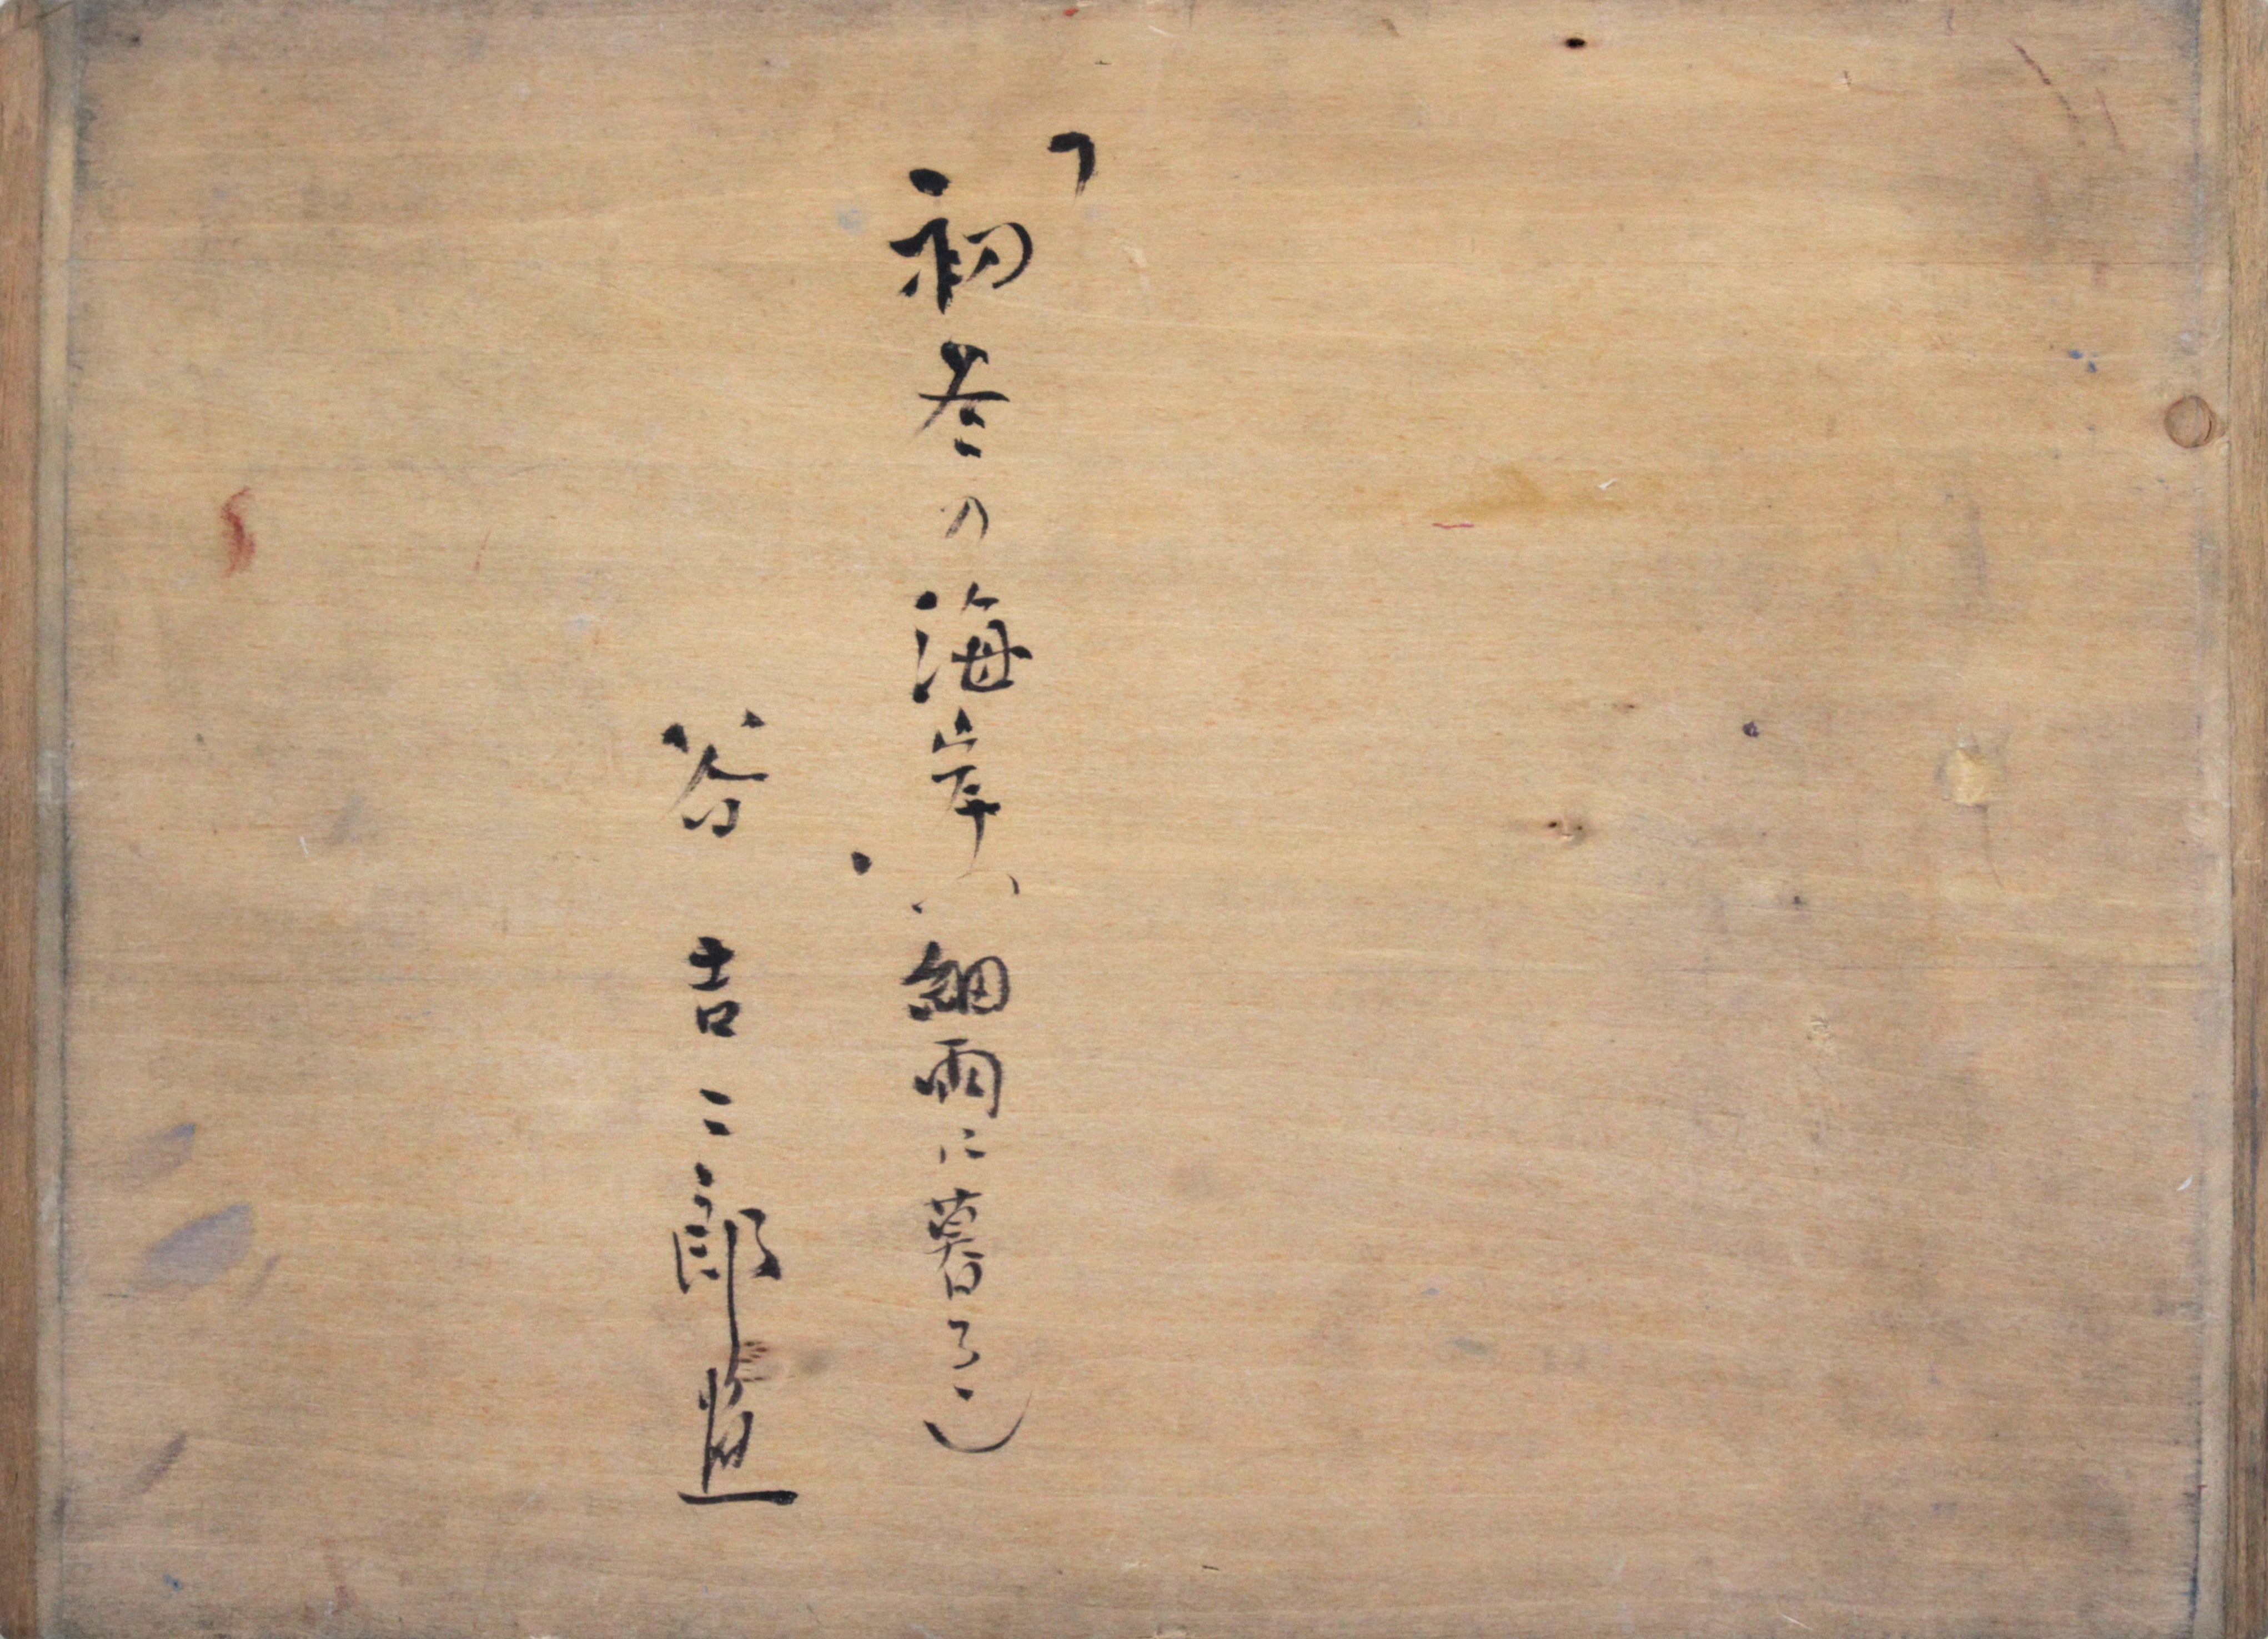 「初冬の海岸ハ細雨に暮るゝ」
谷吉二郎畫